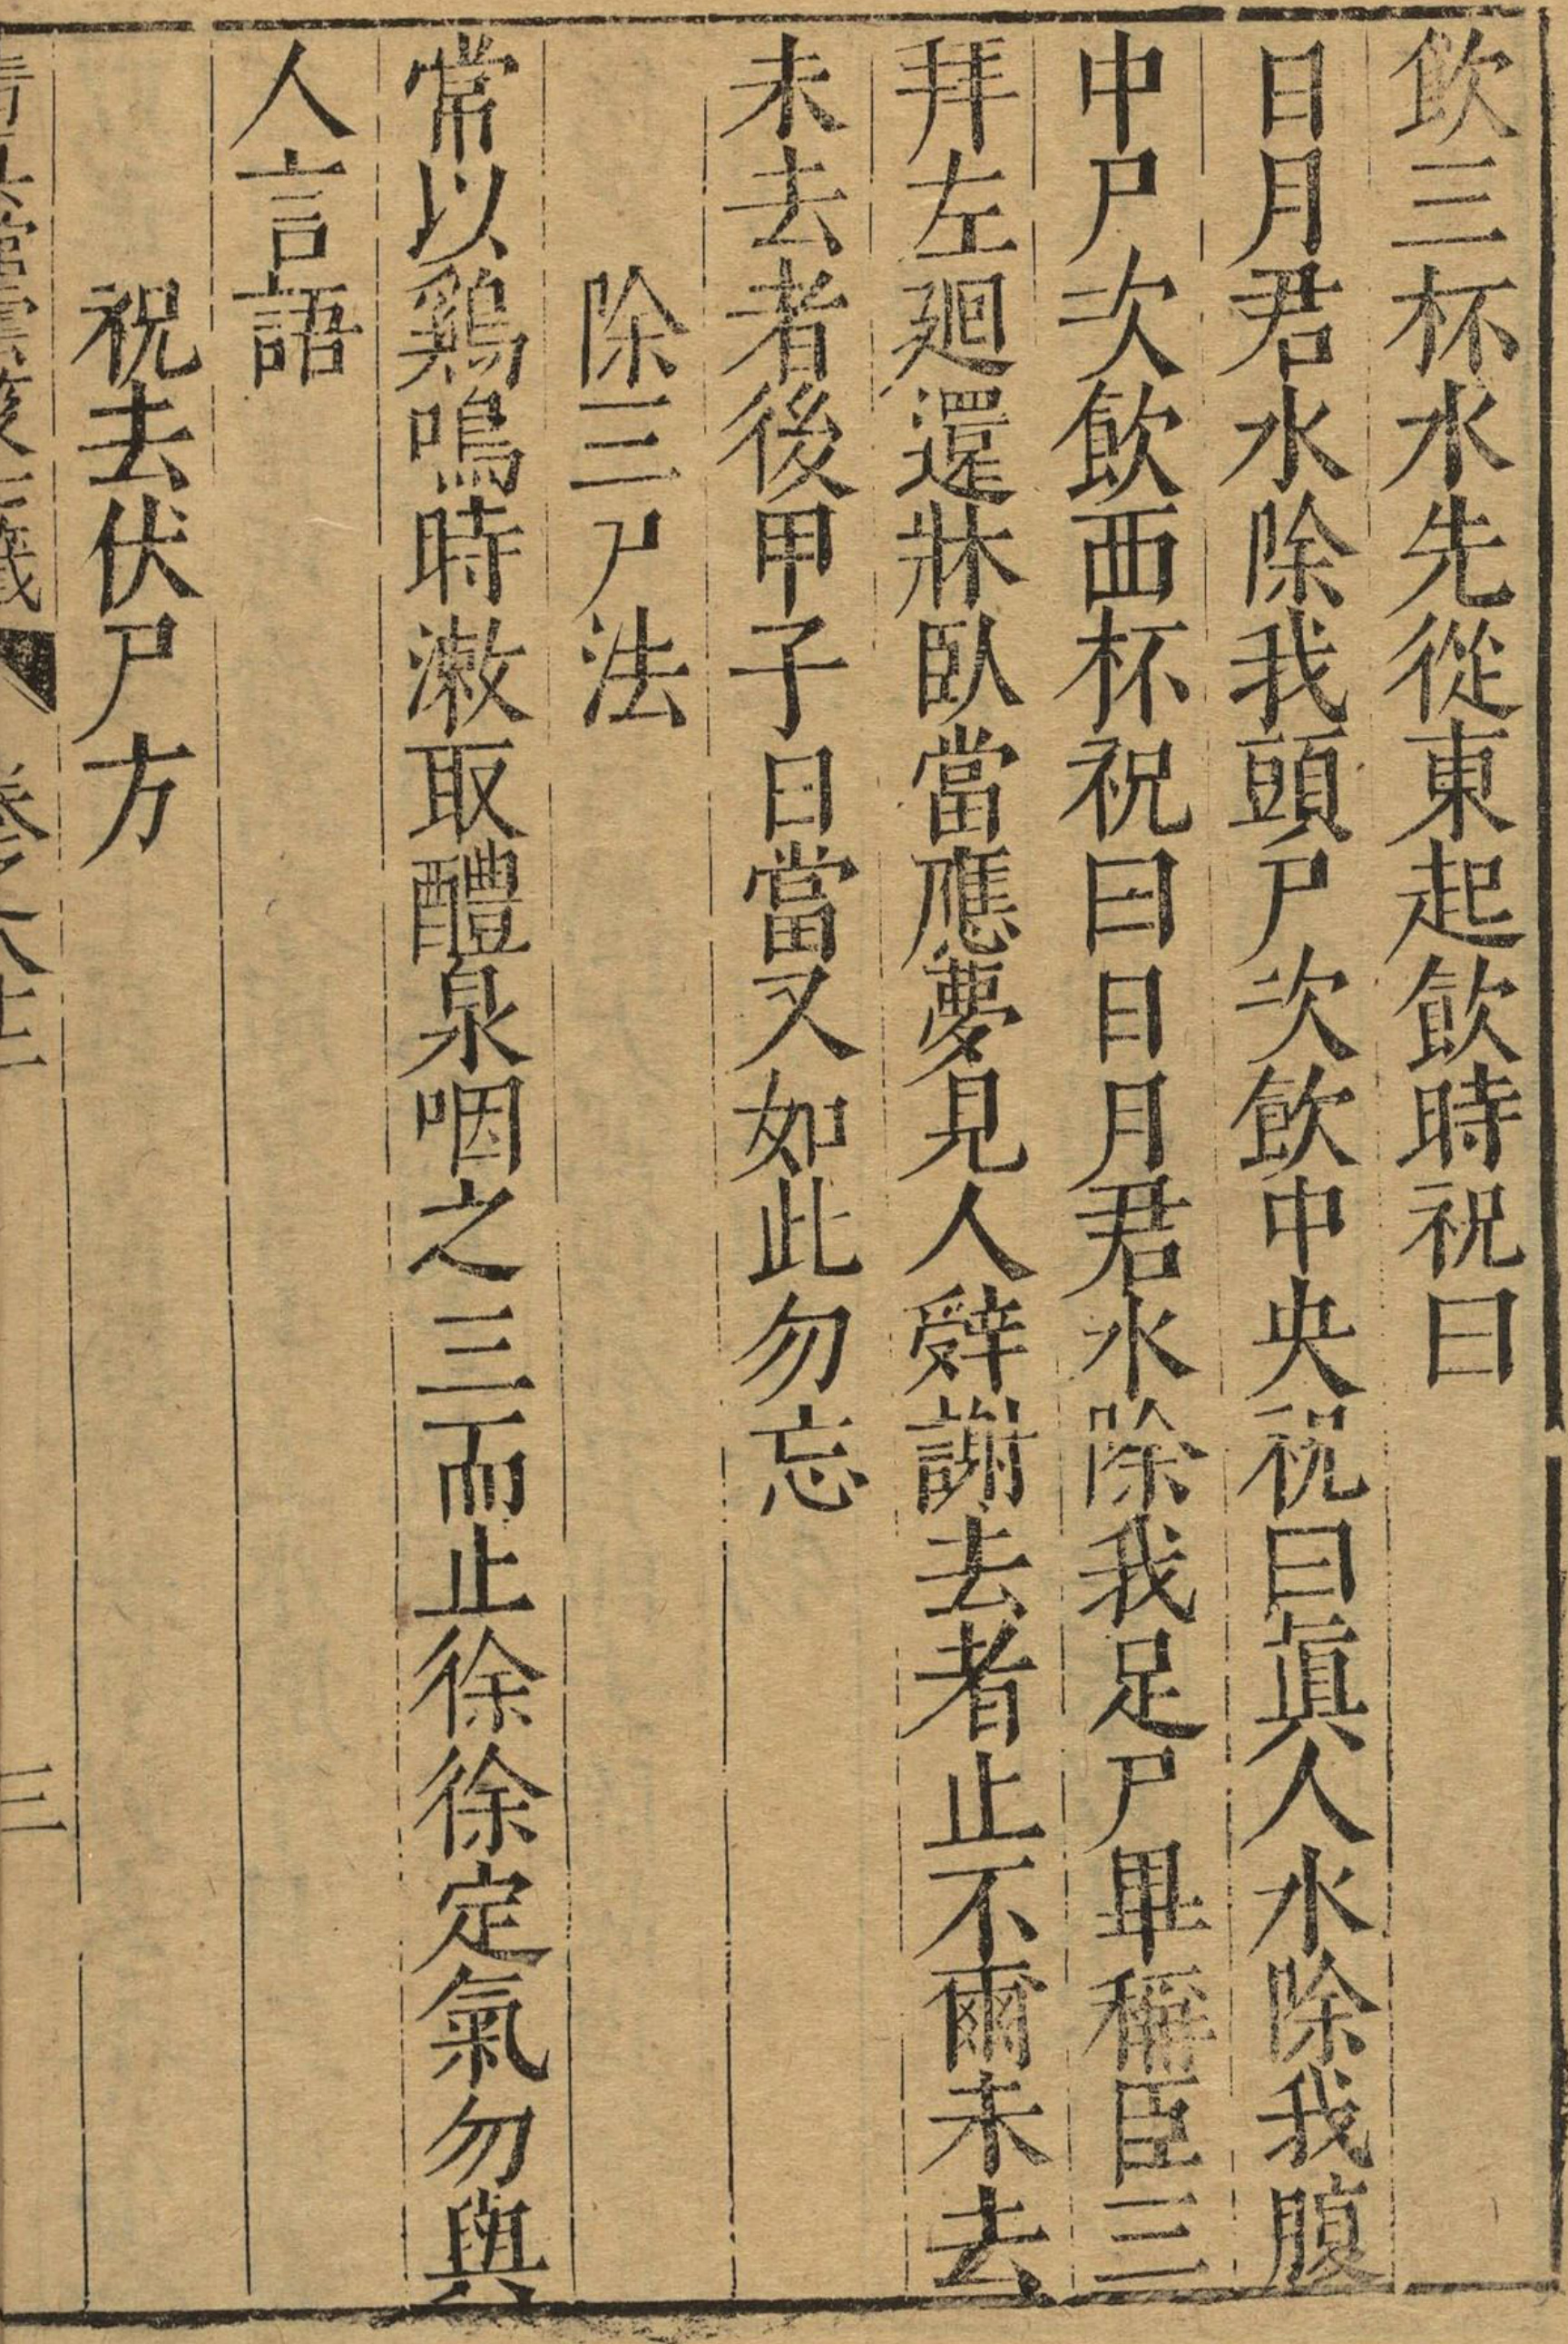 飲三杯水先從東起飲時祝曰
日月君水除我頭尸次飲中央祝曰眞人水除我腹
中尸次飲西杯祝曰日月君水除我足尸畢稱臣三
拜左廻還牀臥當應夢見人辤謝去者止不爾未去
未去者後甲子日當又如此勿忘
除三尸法
常以鷄鳴時漱取醴泉咽之三而止徐徐定氣勿與
人言語
祝去伏尸方
三